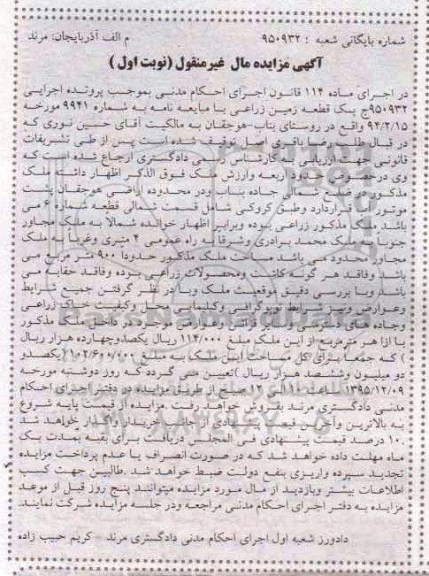 شماره بایگانی شعبه : ۹۵۰۹۳۲ م الف آذربایجان: مرند
آگهی مزایده مال غیرمنقول (نوبت اول)
در اجرای ماده ۱۱۴ قانون اجرای احکام مدنی بموجب پرونده اجرایی
۹۵۰۹۳۲ج یک قطعه زمین زراعی با مبایعه نامه به شماره ۹۹۴۱ مورخه
۹۴/۲/۱۵ واقع در روستای بناب-هوجقان به مالکیت آقای حسین نوری که
در قبال طلب رضا باقری اصل توقیف شده است پس از طی تشریفات
قانونی جهت ارزیابی به کارشناس رسمی دادگستری ارجاع شده است که
وی درخصوص حدود اربعه وارزش ملک فوق الذکر اظهار داشته ملک
مذکور در ضلع شمالی جاده بناب ودر محدوده اراضی هوجقان پشت
موتور آب قراردارد وطبق کروکی شامل قسمت شمالی قطعه شماره ۶ می
باشد ملک مذکور زراعی بوده وبرابر اظهار خوانده شمالا به ملک مجاور
جنوبا به ملک محمد برادری وشرقا به راه عمومی ۴ متری وغربا به ملک
مجاور محدود می باشد مساحت ملک مذکور حدودا ۹۰۰ متر مربع می
باشد وفاقد هر گونه کاشت ومحصولات زراعی بوده وفاقد حقابه می
باشد وبا بررسی دقیق موقعیت ملک وبا در نظر گرفتن جمیع شرایط
وعوارض وضریب شرایط توپوگرافی وکلیماسی محل وکیفیت خاک زراعی
وجاده های دسترسی وآب زراعی وعوارض موجود در داخل ملک مذکور
با ازا هر مترمربع از این ملک مبلغ ۱۱۴/۰۰۰ ریال یکصدوچهارده هزار ریال
) که جمعا برای کل مساحت این ملک به مبلغ ۱۰۲/۶۰۰/۰۰۰(یکصدو
دو میلیون وششصد هزار ریال )تعیین می گردد که روز دوشنبه مورخه
۱۳۹۵/۱۲/۰۹ ساعت ۱۱ الی ۱۲ صبح از طریق مزایده در دفتر اجرای احکام
مدنی دادگستری مرند بفروش خواهد رفت. مزایده از قیمت پایه شروع
به بالاترین وآخرین قیمت پیشنهادی از جانب خریدار واگذار خواهد شد
.۱۰ درصد قیمت پیشنهادی فی المجلس دریافت برای بقیه بمدت یک
ماه مهلت داده خواهد شد که در صورت انصراف یا عدم پرداخت مزایده
تجدید سپرده واریزی بنفع دولت ضبط خواهد شد .طالبین جهت کسب
اطلاعات بیشتر وبازدید از مال مورد مزایده میتوانند پنج روز قبل از موعد
مزایده به دفتر اجرای احکام مدنی مراجعه ودر جلسه مزایده شرکت نمایند.
دادورز شعبه اول اجرای احکام مدنی دادگستری مرند - کریم حبیب زاده